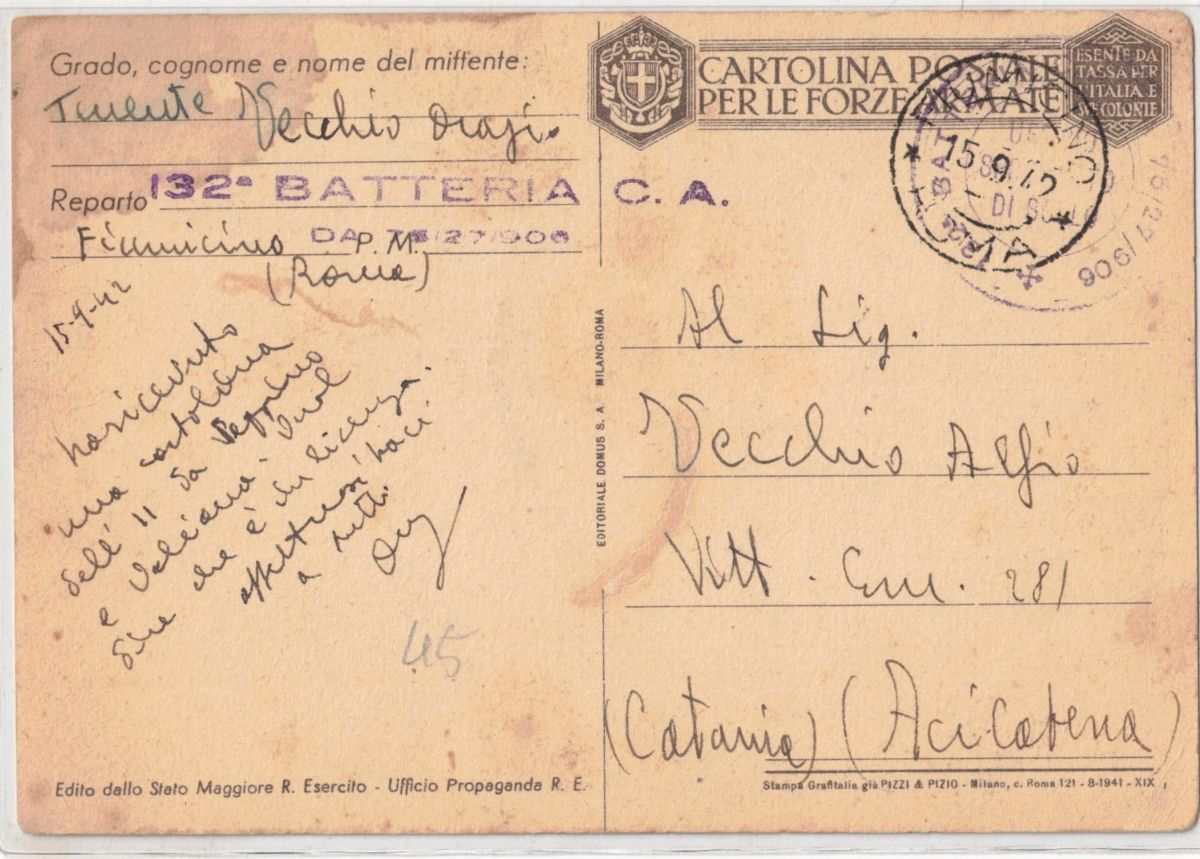 Grado, cognome e nome del mittente:
Tenente Vecchio Orazio
Reparto 132ª BATTERIA C. A.
DA 75/27/906
Fiumicino P. M.
(Roma)
15-9-42
ho ricevuto
una cartolina
dell' 11 da Peppino
e
dire che è in licenza.
affettuosi baci
a tutti.
45
Edito dallo Stato Maggiore R. Esercito - Ufficio Propaganda R. E.
EDITORIALE DOMUS S. A. MILANO-ROMA
CARTOLINA POSTALE
PER LE FORZE ARMATE
ESENTE DA
TASSA PER
L'ITALIA E
LE COLONIE
15.9.42
75/27/906
Al Sig.
Vecchio Alfio
Vitt. Em. 281
(Catania) (Aci Catena)
Stampa Grafitalia già PIZZI & PIZIO - Milano, c. Roma 121 - 8-1941 - XIX